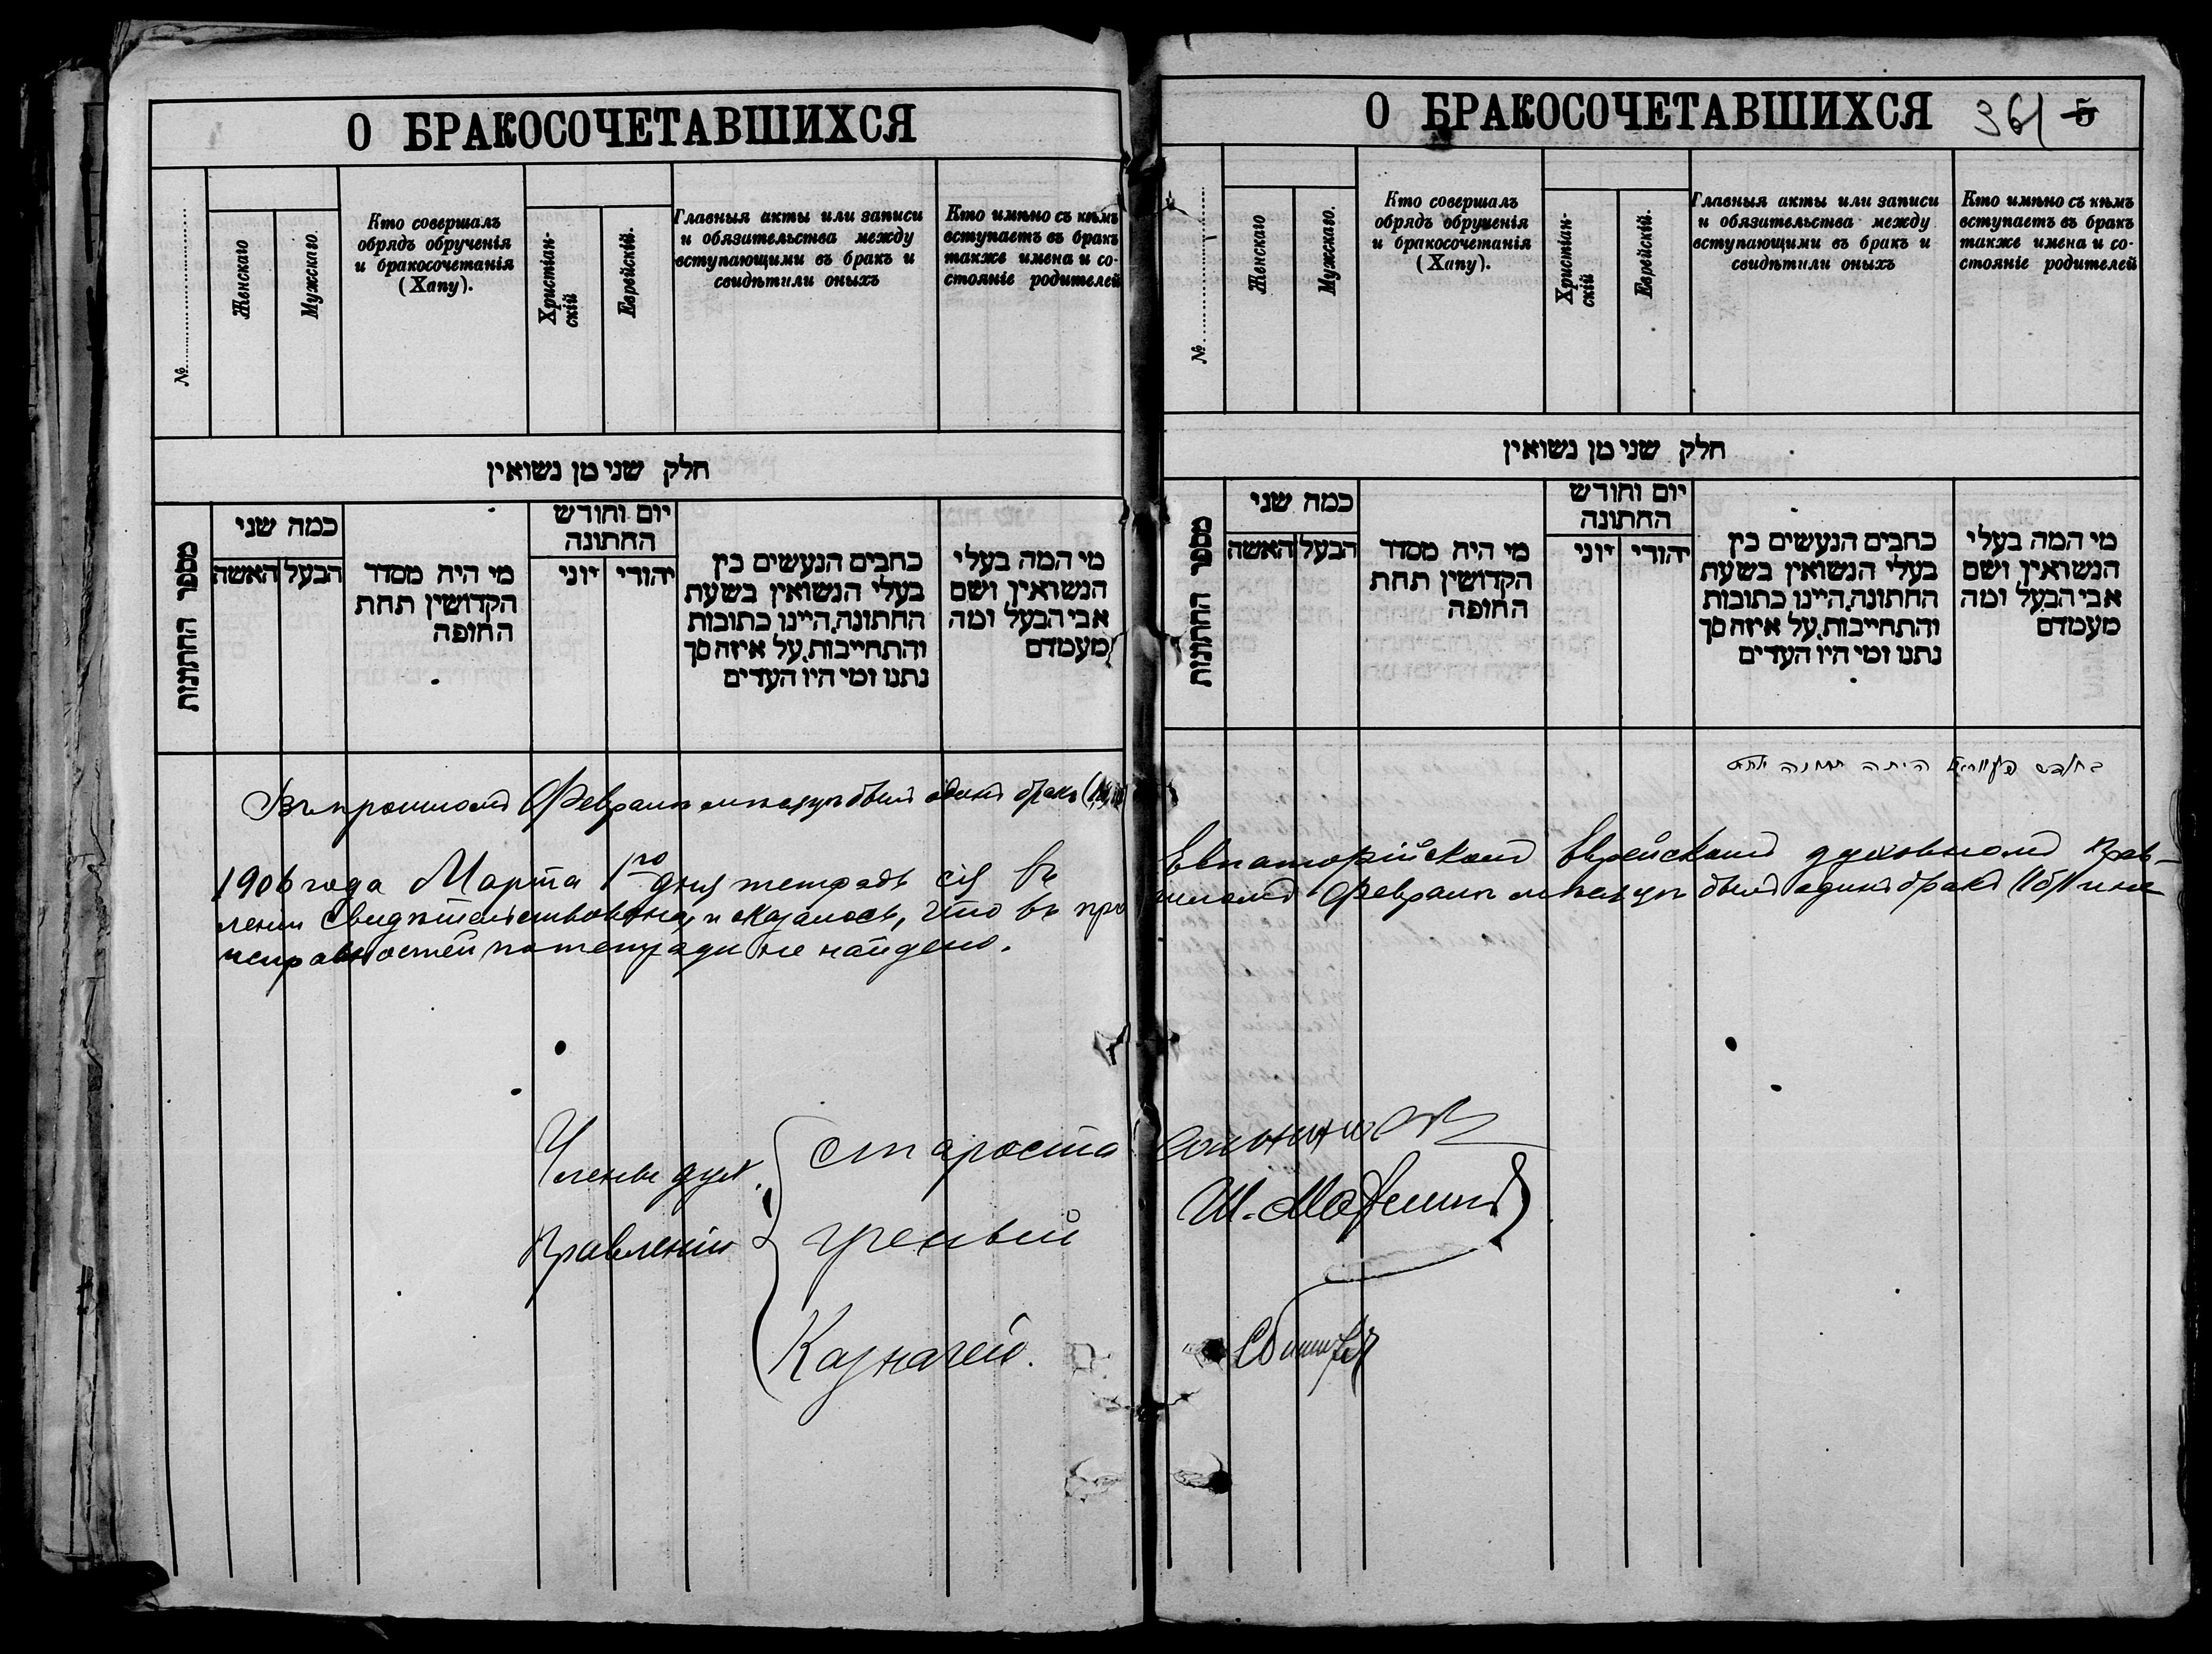 О БРАКОСОЧЕТАВШИХСЯ
№
Женскаго
Мужскаго.
Кто совершалъ
обрядъ обрученія
и бракосочетанія
(Хапу).
Христіан-
скій
Еврейскій.
Главныя акты или записи
и обязательства между
вступающими въ бракъ и
свидѣтили оныхъ
Кто имѣно съ кѣмъ
вступаетъ въ бракъ
также имена и со-
стояніе родителей
חלק שני מן נשואין
מספר החתונות
כמה שני
האשה
הבעל
מי היה מסדר
הקדושין תחת
החופה
יום וחודש
החתונה
יוני
יהודי
כתבים הנעשים בין
בעלי הנשואין בשעת
החתונה, היינו כתובות
והתחייבות, על איזה סך
נתנו ומי היו העדים
מי המה בעלי
הנשואין, ושם
אבי הבעל ומה
מעמדם
Въ прошломъ Февралѣ мѣсяцѣ былъ одинъ бракъ
1906 года Марта 1го дня тетрадь сія въ
леніи свидѣтельствована, и оказалось, что въ про
исправностей по тетради не найдено.
Члены дух.
Правленія
староста
ученый
Казначей.
О БРАКОСОЧЕТАВШИХСЯ
361 5
№
Женскаго
Мужскаго.
Кто совершалъ
обрядъ обрученія
и бракосочетанія
(Хапу).
Христіан-
скій
Еврейскій.
Главныя акты или записи
и обязательства между
вступающими въ бракъ и
свидѣтили оныхъ
Кто имѣно съ кѣмъ
вступаетъ въ бракъ
также имена и со-
стояніе родителей
חלק שני מן נשואין
מספר החתונות
כמה שני
האשה
הבעל
מי היה מסדר
הקדושין תחת
החופה
יום וחודש
החתונה
יוני
יהודי
כתבים הנעשים בין
בעלי הנשואין בשעת
החתונה, היינו כתובות
והתחייבות, על איזה סך
נתנו ומי היו העדים
מי המה בעלי
הנשואין, ושם
אבי הבעל ומה
מעמדם
בחדש פעווראל היתה חתונה אחת
Евпаторійскомъ Еврейскомъ духовномъ Прав-
шломъ Февралѣ мѣсяцѣ былъ одинъ бракъ (1б) и не